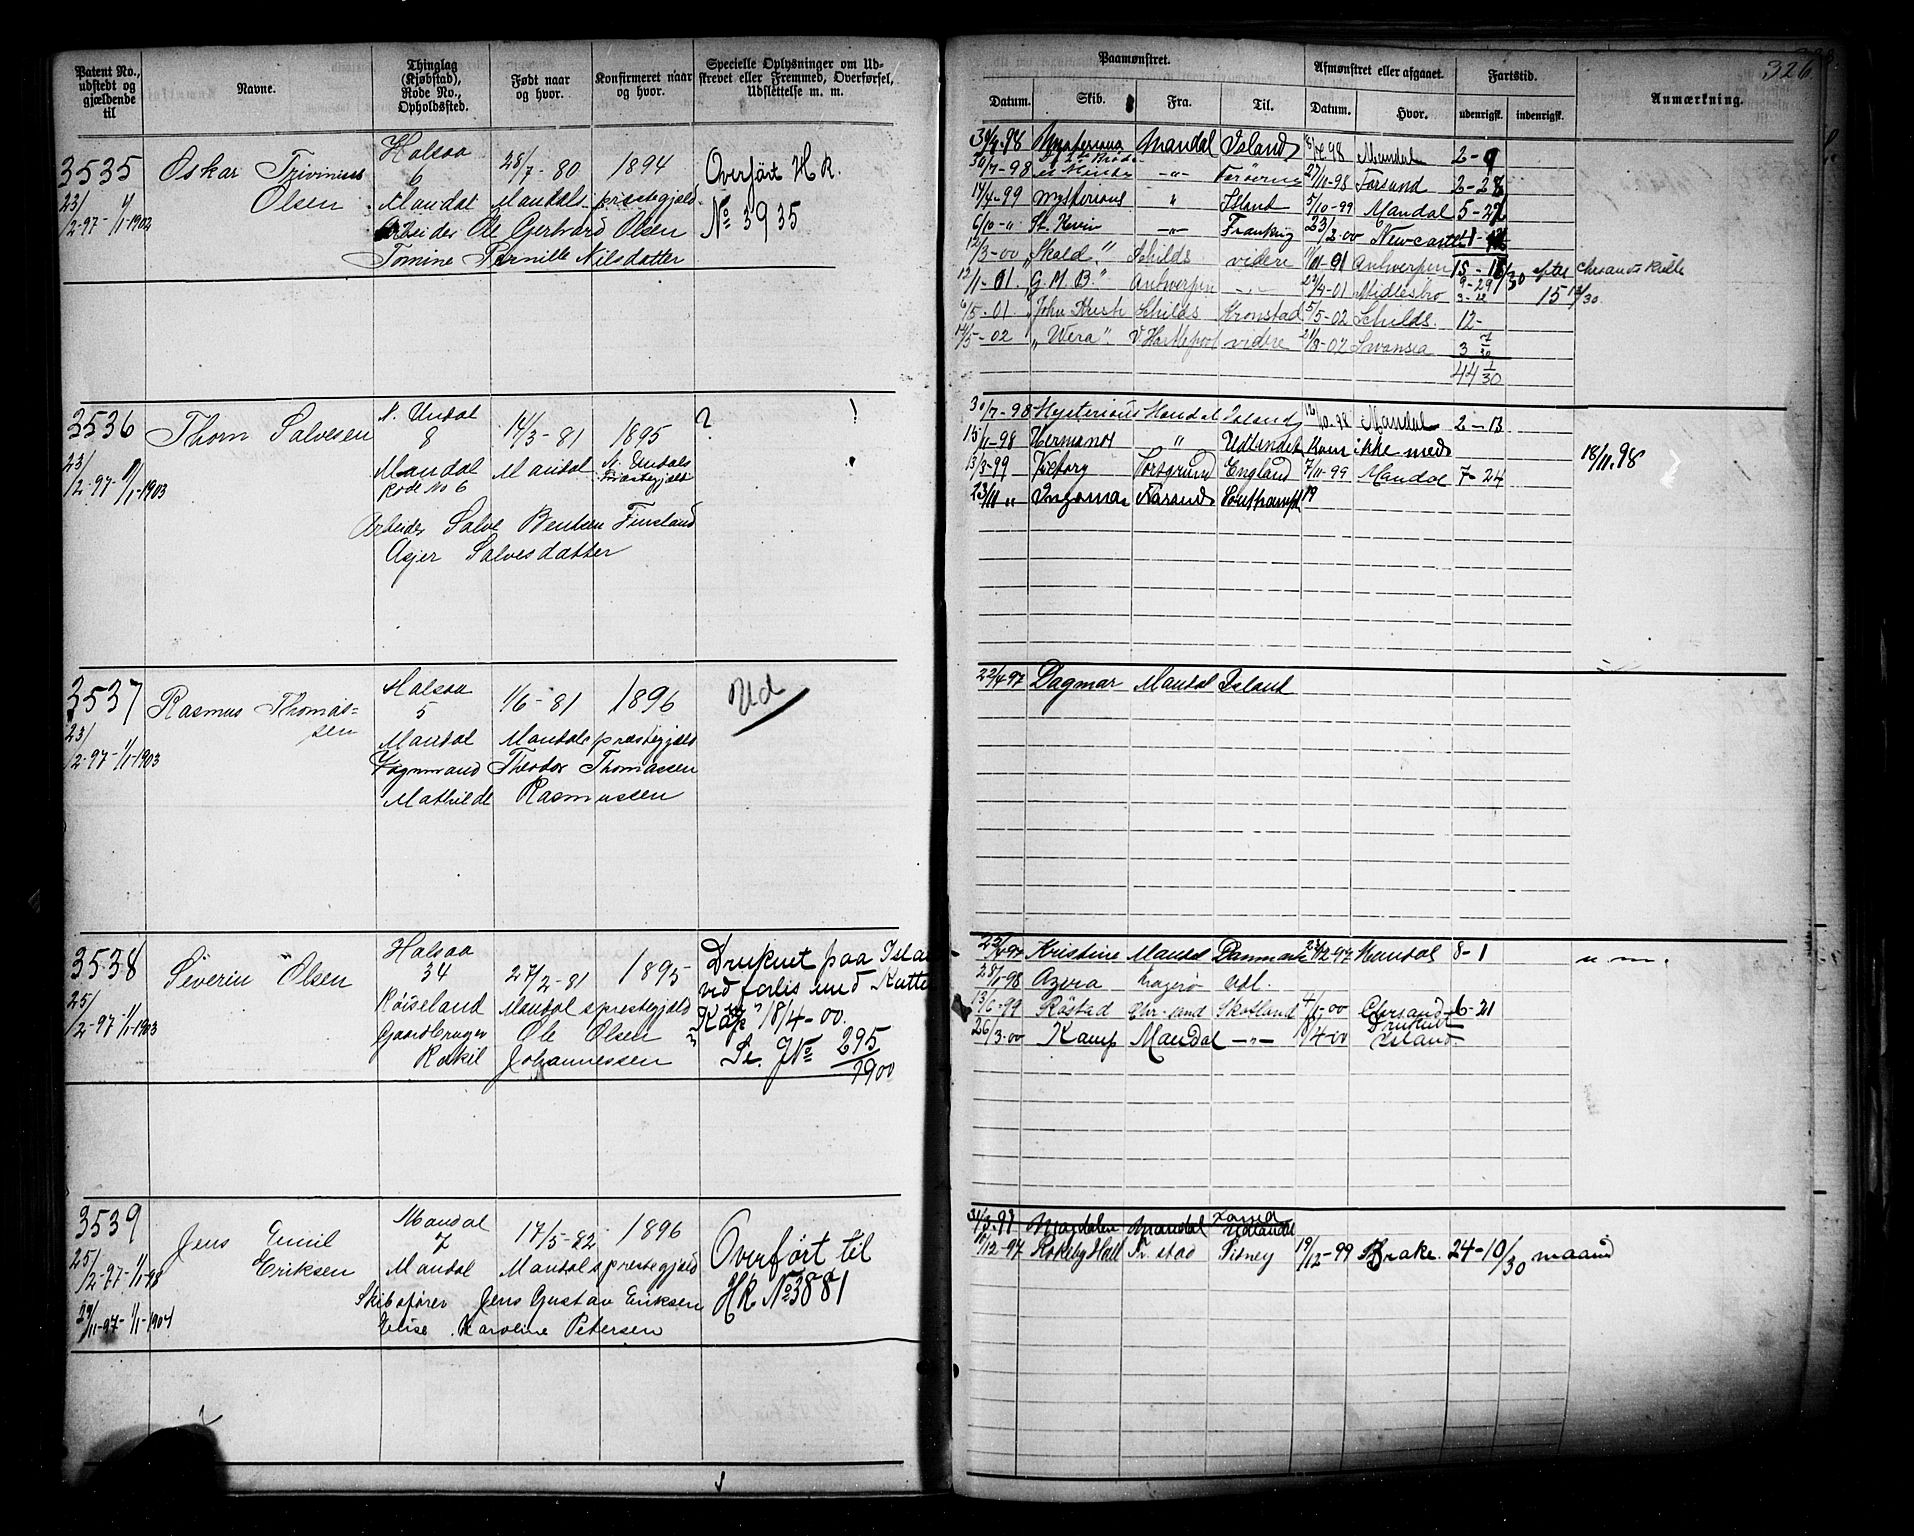 Patent No., udstedt og gjældende til
Navne.
Thinglag (Kjøbstad), Rode No., Opholdssted.
Født naar og hvor.
Konfirmeret naar og hvor.
Specielle Oplysninger om Udskrevet eller Fremmed, Overførsel, Udslettelse m. m.
3535 Oskar Trivinius Halsaa 28/7-80 1894 Overført H.R.
6
23/2-97 1/1-1902 Olsen Mandal Mandals prestegjeld No 3935
Arbeider Ole Gerhard Olsen
Tomine Pernille Nilsdatter
3536 Thom Salvesen N. Undal 14/3-81 1895 ? !
8
23/2-97 1/1-1903 Mandal Mandal N. Undals Præstegjeld
Rode No 6
Arbeider Salve Bentsen Finsland
Asjer Salvesdatter
3537 Rasmus Thomassen Halsaa 1/6-81 1896 Ud
5
23/2-97-1/1-1903 Mandal Mandals præstegjeld
Vognmand Theodor Thomassen
Mathilde Rasmussen
3538 Severin Olsen Halsaa 27/2-81 1895 Druknet paa Isla
34 ved forlis med Kutte
25/2-97-1/1-1903 Röiseland Mandals prestegjeld "Kap" 18/4-00.
Gaardbruger Ole Olsen Se. J No 295/1900
Rakil Johannessen
3539 Jens Emil Mandal 17/5-82 1896 Overført til
7
25/2-97-1/1-98 Eriksen Mandal Mandals prestegjeld HR No 3881
29/11-97-1/1-1904 Skibsfører Jens Gustav Eriksen
Elise Karoline Petersen
326
Paamønstret.
Afmønstret eller afgaaet.
Fartstid.
Anmærkning.
Datum. Skib. Fra. Til. Datum. Hvor. udenrigsk. indenrigsk.
Mysterious Mandal Island Mandal 2-9
30/7-98 Færøerne 27/10-98 Farsund 2-28
14/4-99 Mysterious " Island 5/10-99 Mandal 5-22
6/10-" St. Kevin -"- Frankrig 23/2-00 Newcastle
12/3-00 "Skald." Schilds videre Antwerpen
12/1-01. "G. M. B." Antwerpen -"- 29/4-01 Midlesbro 9-29/30 efter
15 13/30
6/5-01. Schilds Kronstad 5/5-02 Schilds. 12-
14/5-02 "Wera". V Hartlepool videre 21/8-02 Swansea 3 7/30
44 1/30
30/7-98 Mysterious Mandal Island Mandal 2-13
15/11-98 Hermanos " Udlandet Kom ikke med 18/11.98
13/3-99 Victory Porsgrund England 7/11-99 Mandal 7-24
23/11 " Ingomar Narand Southampt 19
22/4 97 Dagmar Mandal Island
Kristine Mandal Danmark Mandal 8-1
28/1-98 Azora Udl.
13/6-99 Röstad Chr-sund Skotland 4/1-00 Chrsand 6-21
26/3-00 Kamp Mandal -"- 18/4-00 Druknet Island.
31/3-97 Magdalen Mandal Udlandet
10/12-97 Rokeby Hall Fr. stad Sidney 19/12-99 Brake. 24-10/30 maaned